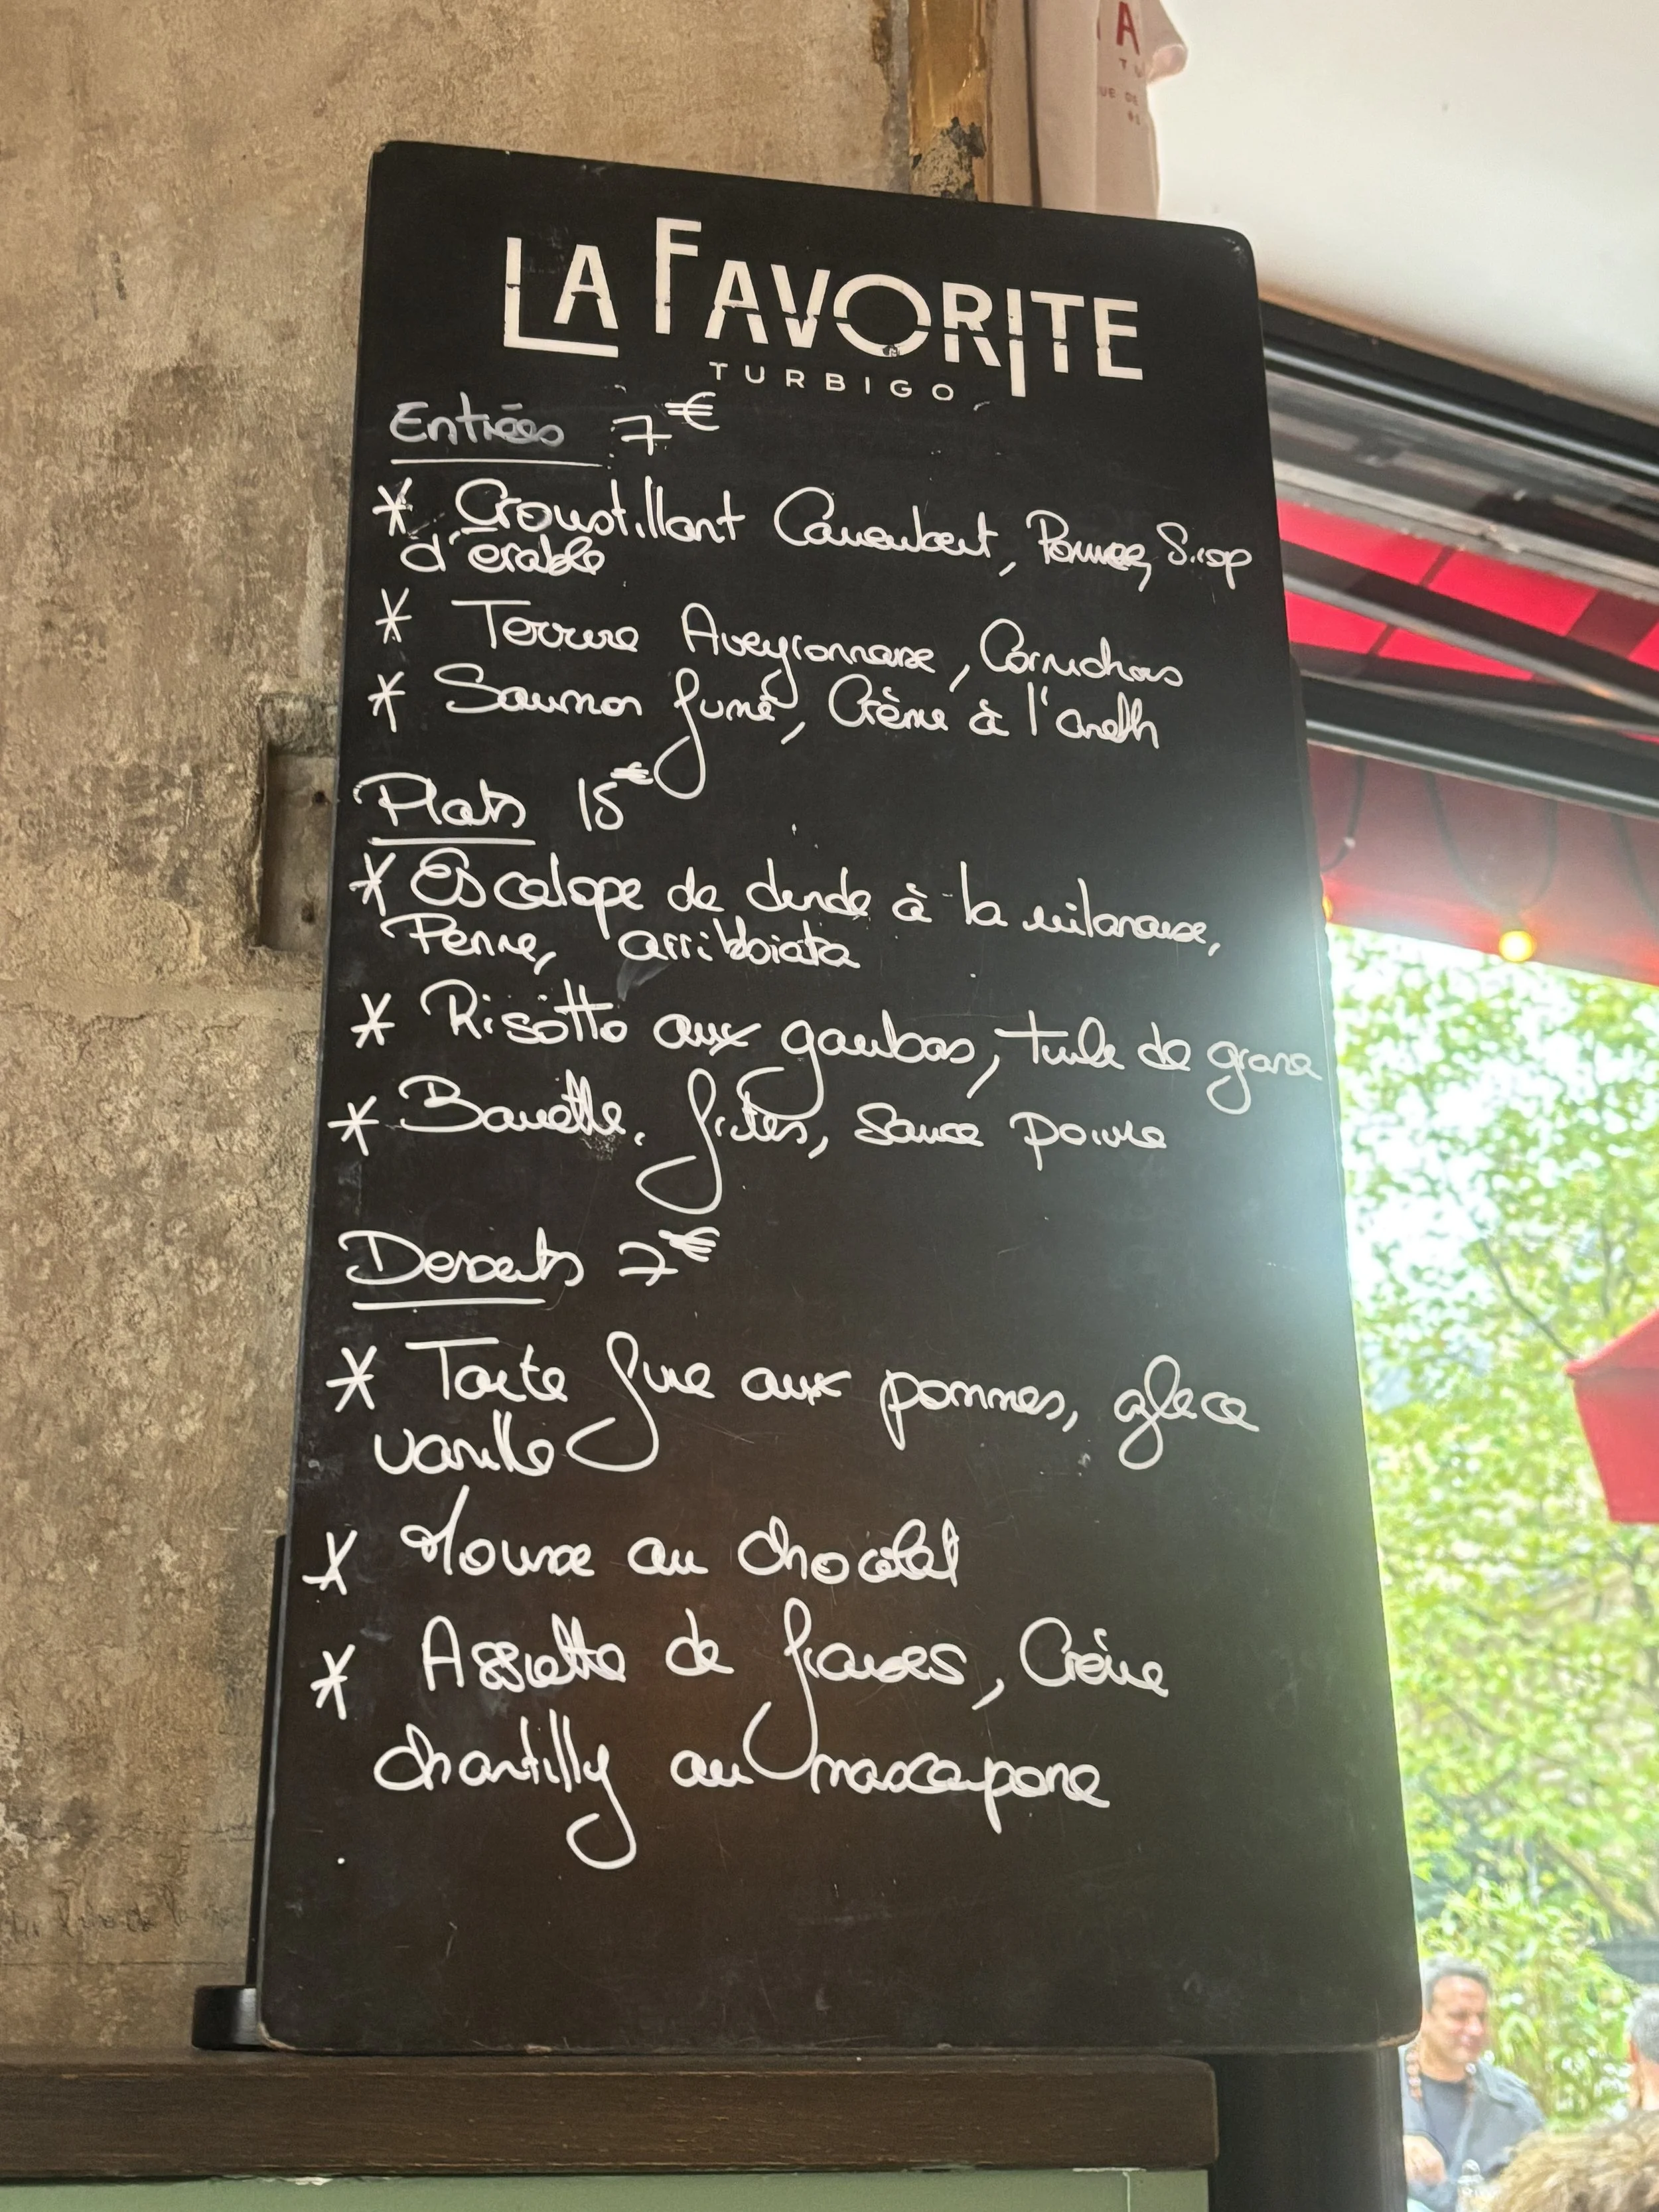 LA FAVORITE
TURBIGO
Entrées 7€
* Croustillant Camembert, Pomme, Sirop
d'érable
* Terrine Aveyronnaise, Cornichons
* Saumon fumé, Crème à l'aneth
Plats 15€
* Escalope de dinde à la milanaise,
Penne, arribbiata
* Risotto aux gambas, tuile de grana
* Bavette, frites, sauce poivre
Desserts 7€
* Tarte fine aux pommes, glace
vanille
* Mousse au chocolat
* Assiette de fraises, Crème
chantilly au mascarpone